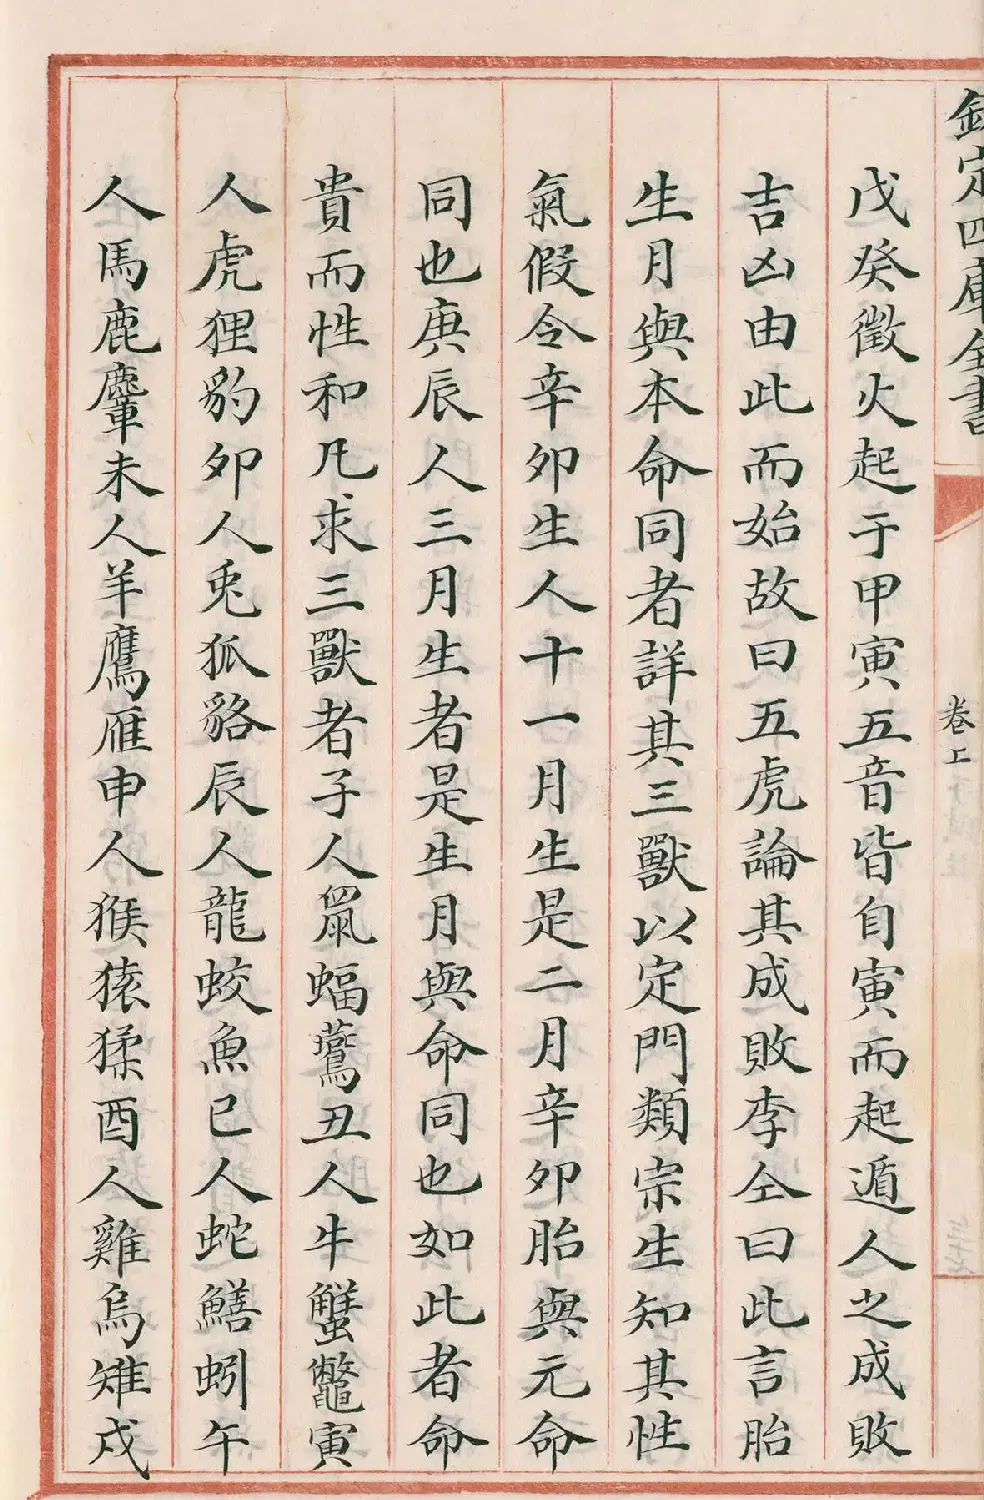 欽定四庫全書
卷上
戊癸徵火起于甲寅五音皆自寅而起遁人之成敗
吉凶由此而始故曰五虎論其成敗李仝曰此言胎
生月與本命同者詳其三獸以定門類宗生知其性
氣假令辛卯生人十一月生是二月辛卯胎與元命
同也庚辰人三月生者是生月與命同也如此者命
貴而性和凡求三獸者子人鼠蝠鷰丑人牛蟹鼈寅
人虎狸豹卯人兎狐貉辰人龍蛟魚巳人蛇鱔蚓午
人馬鹿麞未人羊鷹雁申人猴猿猱酉人雞烏雉戌